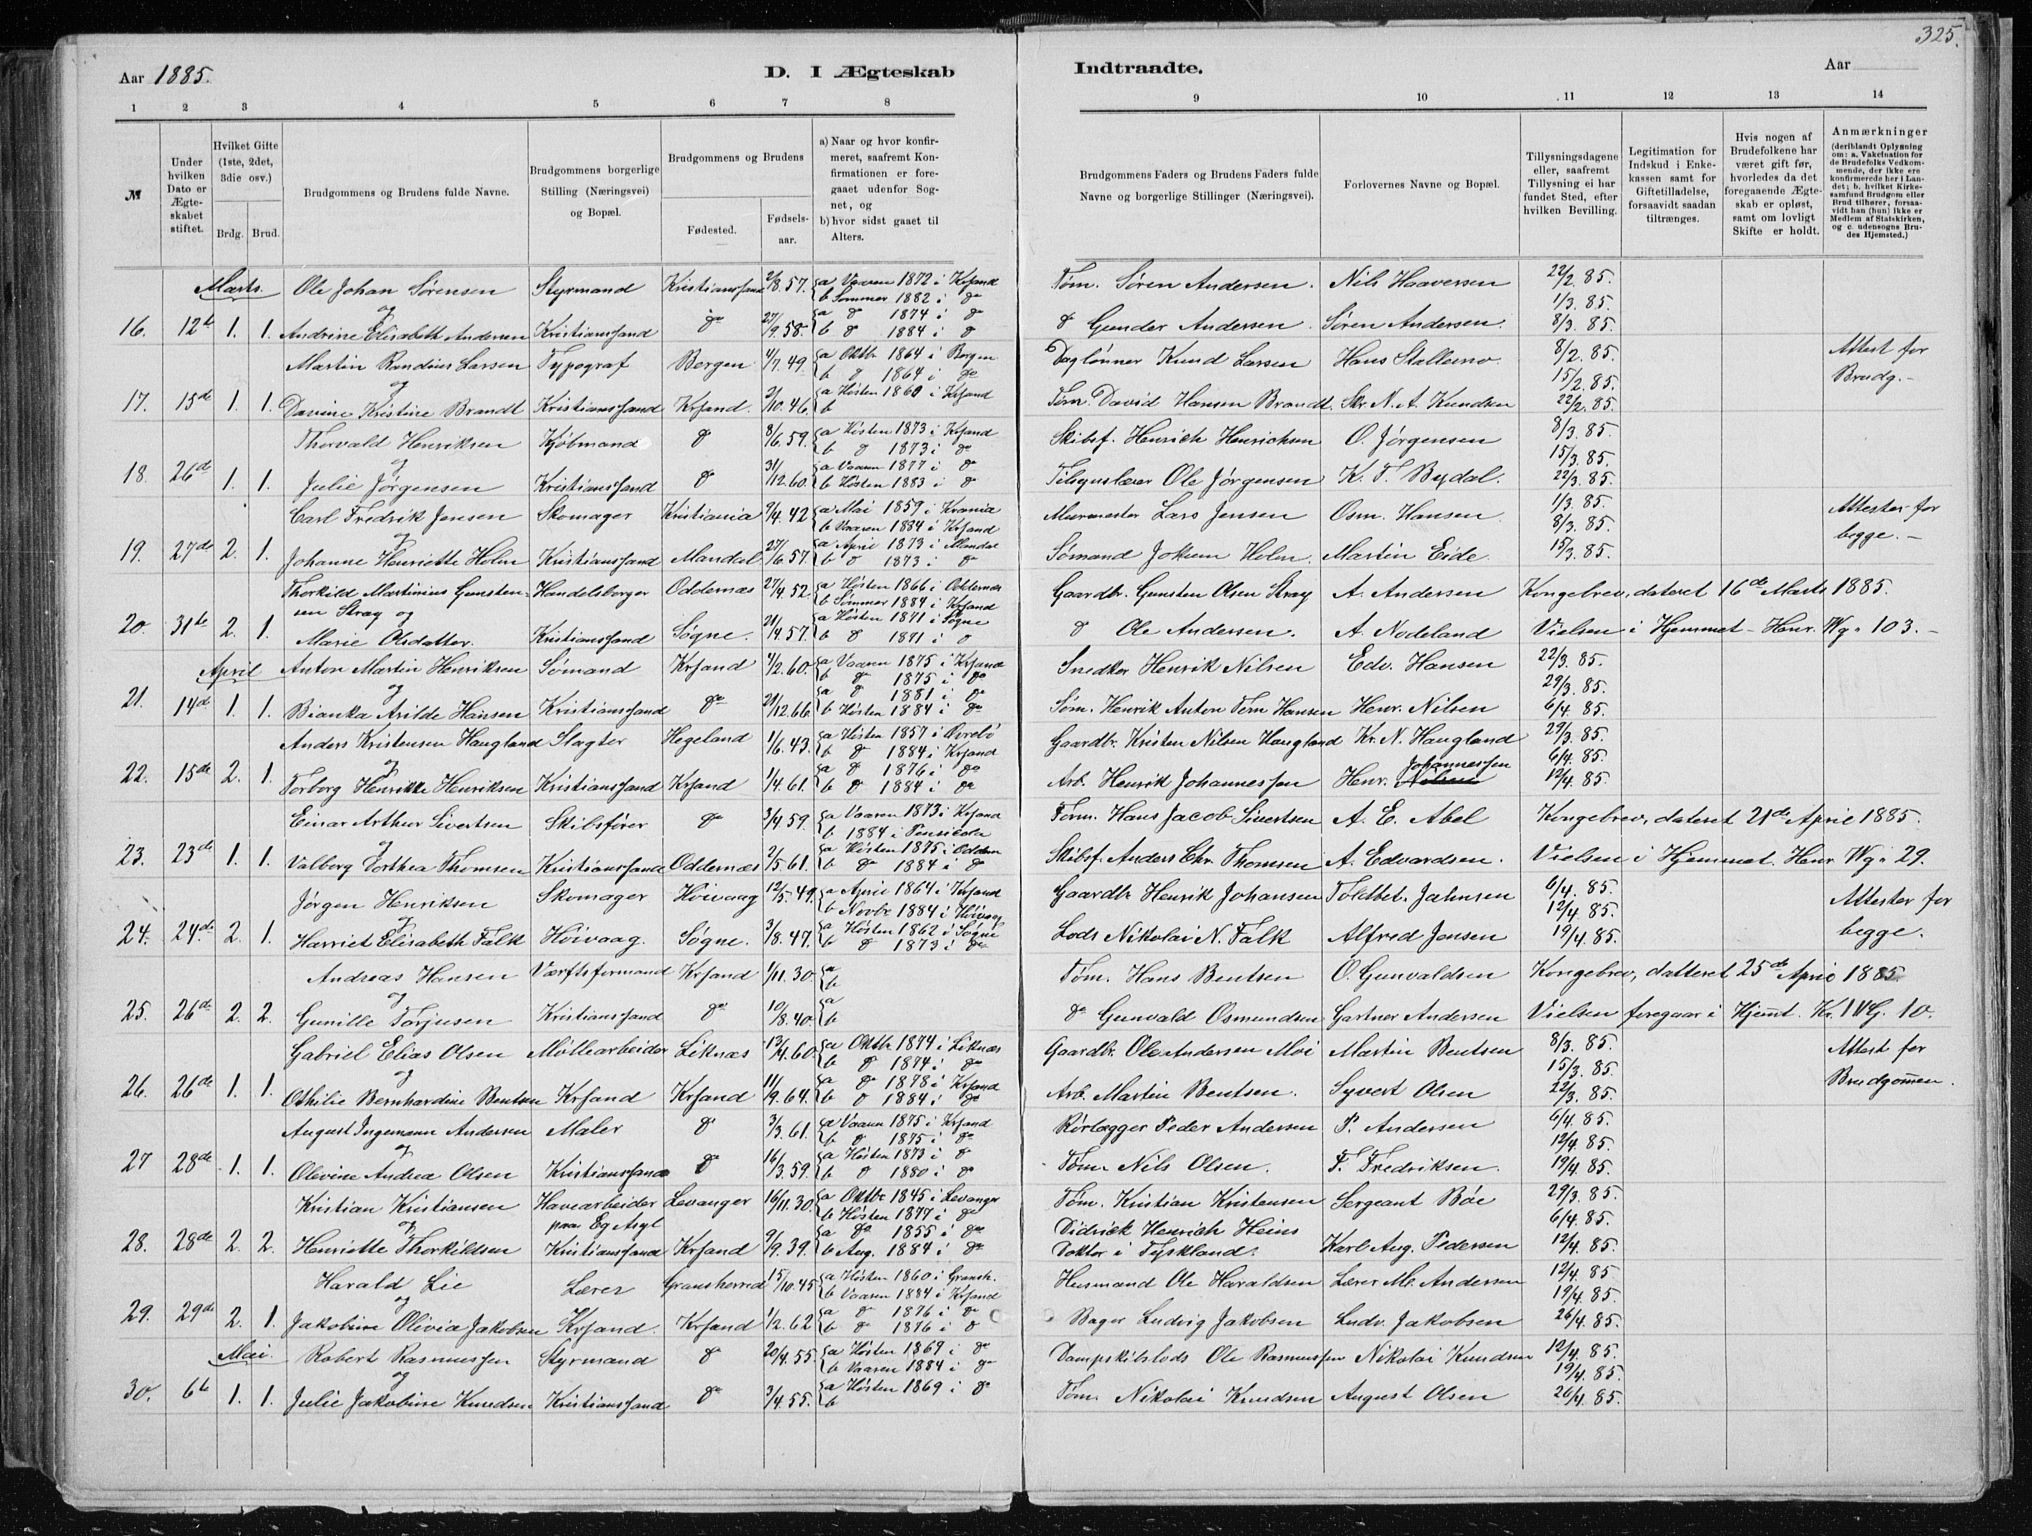 325.
Aar 1885.
D. I Ægteskab Indtraadte.
Aar
1 2 3 4 5 6 7 8 9 10 11 12 13 14
№
Under hvilken Dato er Ægteskabet stiftet.
Hvilket Gifte (1ste, 2det, 3die osv.)
Brdg. Brud.
Brudgommens og Brudens fulde Navne.
Brudgommens borgerlige Stilling (Næringsvei) og Bopæl.
Brudgommens og Brudens
Fødested. Fødselsaar.
a) Naar og hvor konfirmeret, saafremt Konfirmationen er foregaaet udenfor Sognet, og
b) hvor sidst gaaet til Alters.
Brudgommens Faders og Brudens Faders fulde Navne og borgerlige Stillinger (Næringsvei).
Forlovernes Navne og Bopæl.
Tillysningsdagene eller, saafremt Tillysning ei har fundet Sted, efter hvilken Bevilling.
Legitimation for Indskud i Enkekassen samt for Giftetilladelse, forsaavidt saadan tiltrænges.
Hvis nogen af Brudefolkene har været gift før, hvorledes da det foregaaende Ægteskab er opløst, samt om lovligt Skifte er holdt.
Anmærkninger (deriblandt Oplysning om: a. Vakcination for de Brudefolks Vedkommende, der ikke ere konfirmerede her i Landet; b. hvilket Kirkesamfund Brudgom eller Brud tilhører, forsaavidt han (hun) ikke er Medlem af Statskirken, og c. udensogns Brudes Hjemsted.)
Marts. Ole Johan Sørensen Styrmand Kristianssand 2/8.57. a Vaaren 1872 i Krsand b Sommer 1882 i do Tøm. Søren Andersen Nils Haaversen 22/2.85. 1/3.85.
og
16. 12te 1. 1. Andrine Elisabeth Andersen Kristianssand do 27/9.58. a do 1874 i do b do 1884 i do do Gunder Andersen. Søren Andersen. 8/3.85.
Martin Randius Larsen Typograf Bergen 4/7.49. a Oktbr 1864 i Bergen b do 1864 i do Daglønner Knud Larsen Hans Stallemo 8/2.85. 15/2.85. Attest for Brudg.-
og
17. 15de 1. 1. Davine Kristine Brandt Kristianssand Krsand. 2/10.46. a Høsten 1860 i Krsand b Tøm. David Hansen Brandt. Skr. N. A. Knudsen 22/2.85.
Thorvald Henriksen Kjøbmand do 8/6.59. a Høsten 1873 i Krsand b do 1873 i do Skibsf. Henrich Henrichsen O. Jørgensen 8/3.85. 15/3.85.
og
18. 26de 1. 1. Julie Jørgensen Kristianssand do 31/12.60. a Vaaren 1877 i do b Høsten 1883 i do Ole Jørgensen K. T. Bydal. 22/3.85.
Carl Fredrik Jensen Skomager Kristiania 9/4.42 a Mai 1859 i Krania b Vaaren 1884 i Krsand Murmester Lars Jensen Osm. Hansen 1/3.85. 8/3.85. Attester for begge.-
og
19. 27de 2. 1. Johanne Henriette Holm Kristianssand Mandal 27/6.57. a April 1873 i Mandal b do 1873 i do Sømand Jokum Holm. Martin Eide. 15/3.85.
Thorkild Martinius Gunstensen Stray og Handelsborger Oddernæs 27/4.52. a Høsten 1866 i Oddernæs b Sommer 1884 i Krsand Gaardbr. Gunsten Olsen Stray A. Andersen Kongebrev, dateret 16de Marts 1885.
20. 31te 2. 1. Marie Olsdatter. Kristianssand Søgne. 21/4.57. a Høsten 1871 i Søgne b do 1871 i do do Ole Andersen. A. Nodeland Vielsen i Hjemmet - Henr. Wg. 103.-
April Anton Martin Henriksen Sømand Krsand 9/2.60. a Vaaren 1875 i Krsand b do 1875 i do Snedker Henrik Nilsen Edv. Hansen 22/3.85. 29/3.85.
og
21. 14de 1. 1. Bianka Arilde Hansen Kristianssand do 21/12.66. a do 1881 i do b Høsten 1884 i do Søm. Henrik Anton Fern Hansen Henr. Nilsen 6/4.85.
Anders Kristensen Haugland Slagter Hegeland 1/6.43. a Høsten 1857 i Øvrebø b do 1884 i Krsand Gaardbr. Kristen Nilsen Haugland Kr. N. Haugland 29/3.85. 6/4.85.
og
22. 15de 2. 1. Torborg Henrikke Henriksen Kristianssand Krsand 1/4.61. a do 1876 i do b do 1884 i do Arb. Henrik Johannessen Henr. Johannessen 12/4.85.
Einar Arthur Sivertsen Skibsfører do 3/4.59. a Vaaren 1873 i Krsand b 1884 i Pensicola Tøm. Hans Jacob Sivertsen A. E. Abel Kongebrev, dateret 21de April 1885.
og
23. 23de 1. 1. Valborg Torthea Thomsen Kristianssand Oddernæs 2/5.61. a Høsten 1875 i Oddern b do 1884 i do Skibsf. Anders Chr. Thomsen A. Edvardsen. Vielsen i Hjemmet. Henr. Wg. 29.
Jørgen Henriksen Skomager Høivaag 12/5.49. a April 1864 i Krsand b Novbr 1884 i Høivaag Gaardbr Henrik Johansen Toldbet. Jahnsen 6/4.85. 12/4.85. Attester for begge.
og
24. 24de 2. 1. Harriet Elisabeth Falk Høivaag. Søgne. 3/8.47. a Høsten 1862 i Søgne b do 1873 i do Lods Nikolai N. Falk Alfred Jensen 19/4.85.
Andreas Hansen Værftsformand Krsand 1/11.30. a b Tøm. Hans Bentsen O. Gunvaldsen Kongebrev, datteret 25de April 1885
og
25. 26de 2. 2. Gunille Torjusen Kristianssand do 10/8.40. a b do Gunvald Osmundsen Gartner Andersen Vielsen foregaar i Hjemt. Kr. IV G. 10.
Gabriel Elias Olsen Møllearbeider Liknæs 13/4.60. a Oktbr 1874 i Liknæs b do 1874 i do Gaardbr. Ole Andersen Moi Martin Bentsen 8/3.85. 15/3.85. Attest for Brudgommen.
og
26. 26de 1. 1. Othilie Bernhardine Bentsen Krsand Krsand 11/9.64. a do 1878 i Krsand b do 1884 i do Arb. Martin Bentsen. Syvert Olsen 22/3.85.
August Ingemann Andersen Maler do 3/3.61. a Vaaren 1875 i Krsand b do 1875 i do Rørlægger Peder Andersen P. Andersen 6/4.85. 12/4.85.
og
27 28de 1. 1. Olevine Andrea Olsen Kristianssand do 16/3.59. a Høsten 1873 i do b do 1880 i do Tøm. Nils Olsen. F. Fredriksen. 19/4.85.
Kristian Kristiansen Havearbeider paa Eg Asyl Levanger 16/11.30. a Oktbr 1845 i Levanger b Høsten 1877 i do Tøm. Kristian Kristensen Sergeant Bøe 29/3.85. 6/4.85.
og
28. 28de 2. 2. Henriette Thorkildsen Kristianssand Krsand 9/9.39. a do 1855 i do b Aug. 1884 i do Didrick Henrich Heins Doktor i Tyskland. Karl Aug. Pedersen 12/4.85.
Harald Lie Lærer Gransherred 15/10.45 a Høsten 1860 i Gransh. b Vaaren 1884 i Krsand Husmand Ole Haraldsen Lærer M. Andersen 12/4.85 19/4.85.
og
29. 29de 2. 1. Jakobine Olivia Jakobsen Krsand. Krsand 1/2.62 a do 1876 i do b do 1876 i do Bager Ludvig Jakobsen Ludv. Jakobsen 26/4.85.
Mai. Robert Rasmussen Styrmand do 20/4.55. a Høsten 1869 i do b Vaaren 1884 i do Dampskibslods Ole Rasmussen Nikolai Knudsen 12/4.85. 19/4.85.
og
30. 6te 1. 1. Julie Jakobine Knudsen Kristianssand do 3/4.55. a Høsten 1869 i do b Tøm. Nikolai Knudsen August Olsen 26/4.85.